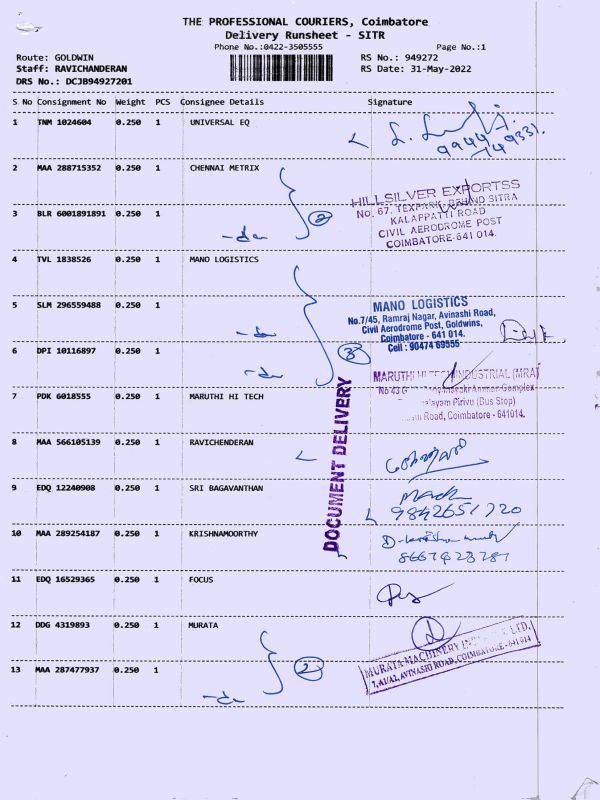 THE PROFESSIONAL COURIERS, Coimbatore
Delivery Runsheet - SITR
Phone No.:0422-3505555 Page No.:1
Route: GOLDWIN RS No.: 949272
Staff: RAVICHANDERAN RS Date: 31-May-2022
DRS No.: DCJB94927201
S No Consignment No Weight PCS Consignee Details Signature
1 TNM 1024604 0.250 1 UNIVERSAL EQ
2 MAA 288715352 0.250 1 CHENNAI METRIX
HILLSILVER EXPORTSS
No. 67, TEXPARK, BEHIND SITRA
3 BLR 6001891891 0.250 1
KALAPPATTI ROAD
CIVIL AERODROME POST
COIMBATORE-641 014.
2
4 TVL 1838526 0.250 1 MANO LOGISTICS
5 SLM 296559488 0.250 1
MANO LOGISTICS
No.7/45, Ramraj Nagar, Avinashi Road,
Civil Aerodrome Post, Goldwins,
Coimbatore - 641 014.
Cell : 90474 69555
3
6 DPI 10116897 0.250 1
MARUTHI HI TECH INDUSTRIAL (MRA)
7 PDK 6018555 1 0.250 MARUTHI HI TECH
Pirivu (Bus Stop)
Road, Coimbatore - 641014.
DOCUMENT DELIVERY
8 MAA 566105139 0.250 1 RAVICHENDERAN
9 EDQ 12240908 0.250 1 SRI BAGAVANTHAN
9842651720
10 MAA 289254187 0.250 1 KRISHNAMOORTHY
11 EDQ 16529365 0.250 1 FOCUS
12 DDG 4319893 0.250 1 MURATA
MURATA MACHINERY LTD.
7, A1/A1, AVINASHI ROAD, COIMBATORE - 641 014
13 MAA 287477937 0.250 1
2